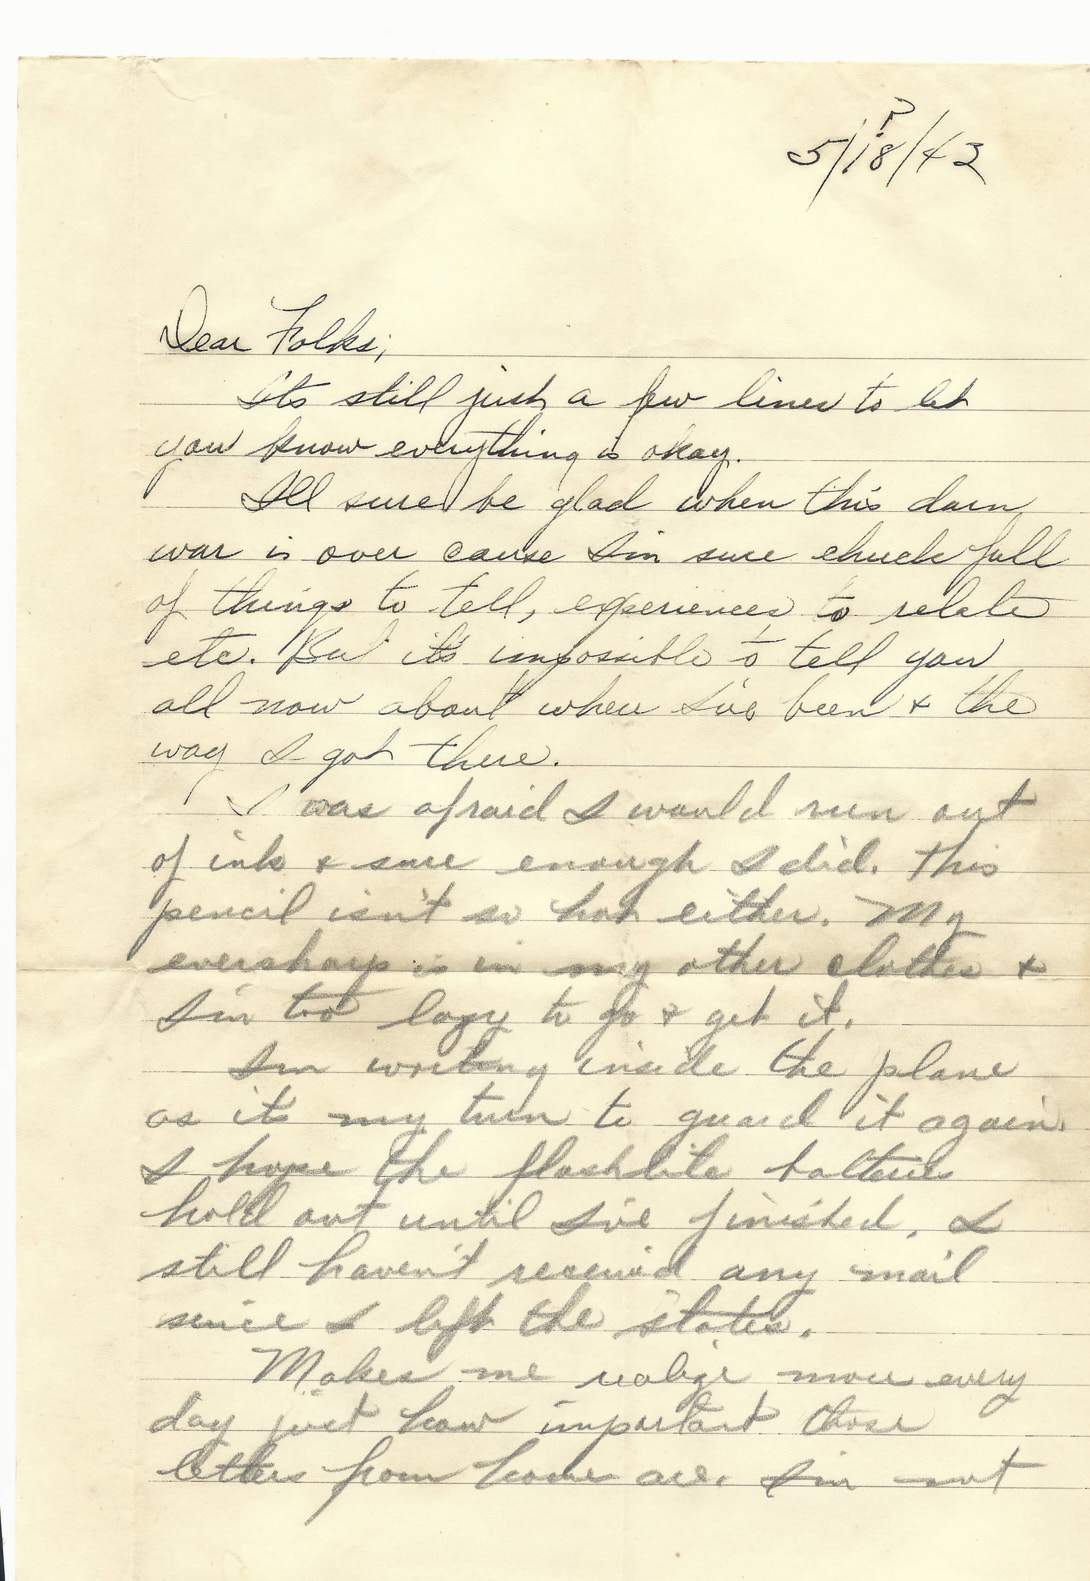 5/18/43
Dear Folks;
Its still just a few lines to let
you know everything is okay.
I'll sure be glad when this darn
war is over cause I'm sure chuck full
of things to tell, experiences to relate
etc. But it's impossible to tell you
all now about where I've been & the
way I got there.
I was afraid I would run out
of ink & sure enough I did. This
pencil isn't so hot either. My
eversharp is in my other clothes &
I'm too lazy to go & get it.
I'm writing inside the plane
as its my turn to guard it again.
I hope the flashlite batteries
hold out until I've finished. I
still haven't received any mail
since I left the states.
Makes me realize more every
day just how important those
letters from home are. I'm not